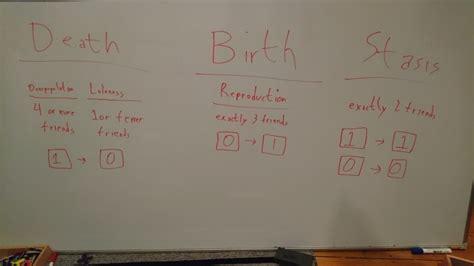 Death
4 or more
friends
1 or fewer
friends
1 → 0
Birth
Reproduction
exactly 3 friends
0 → 1
Stasis
exactly 2 friends
1 → 1
0 → 0